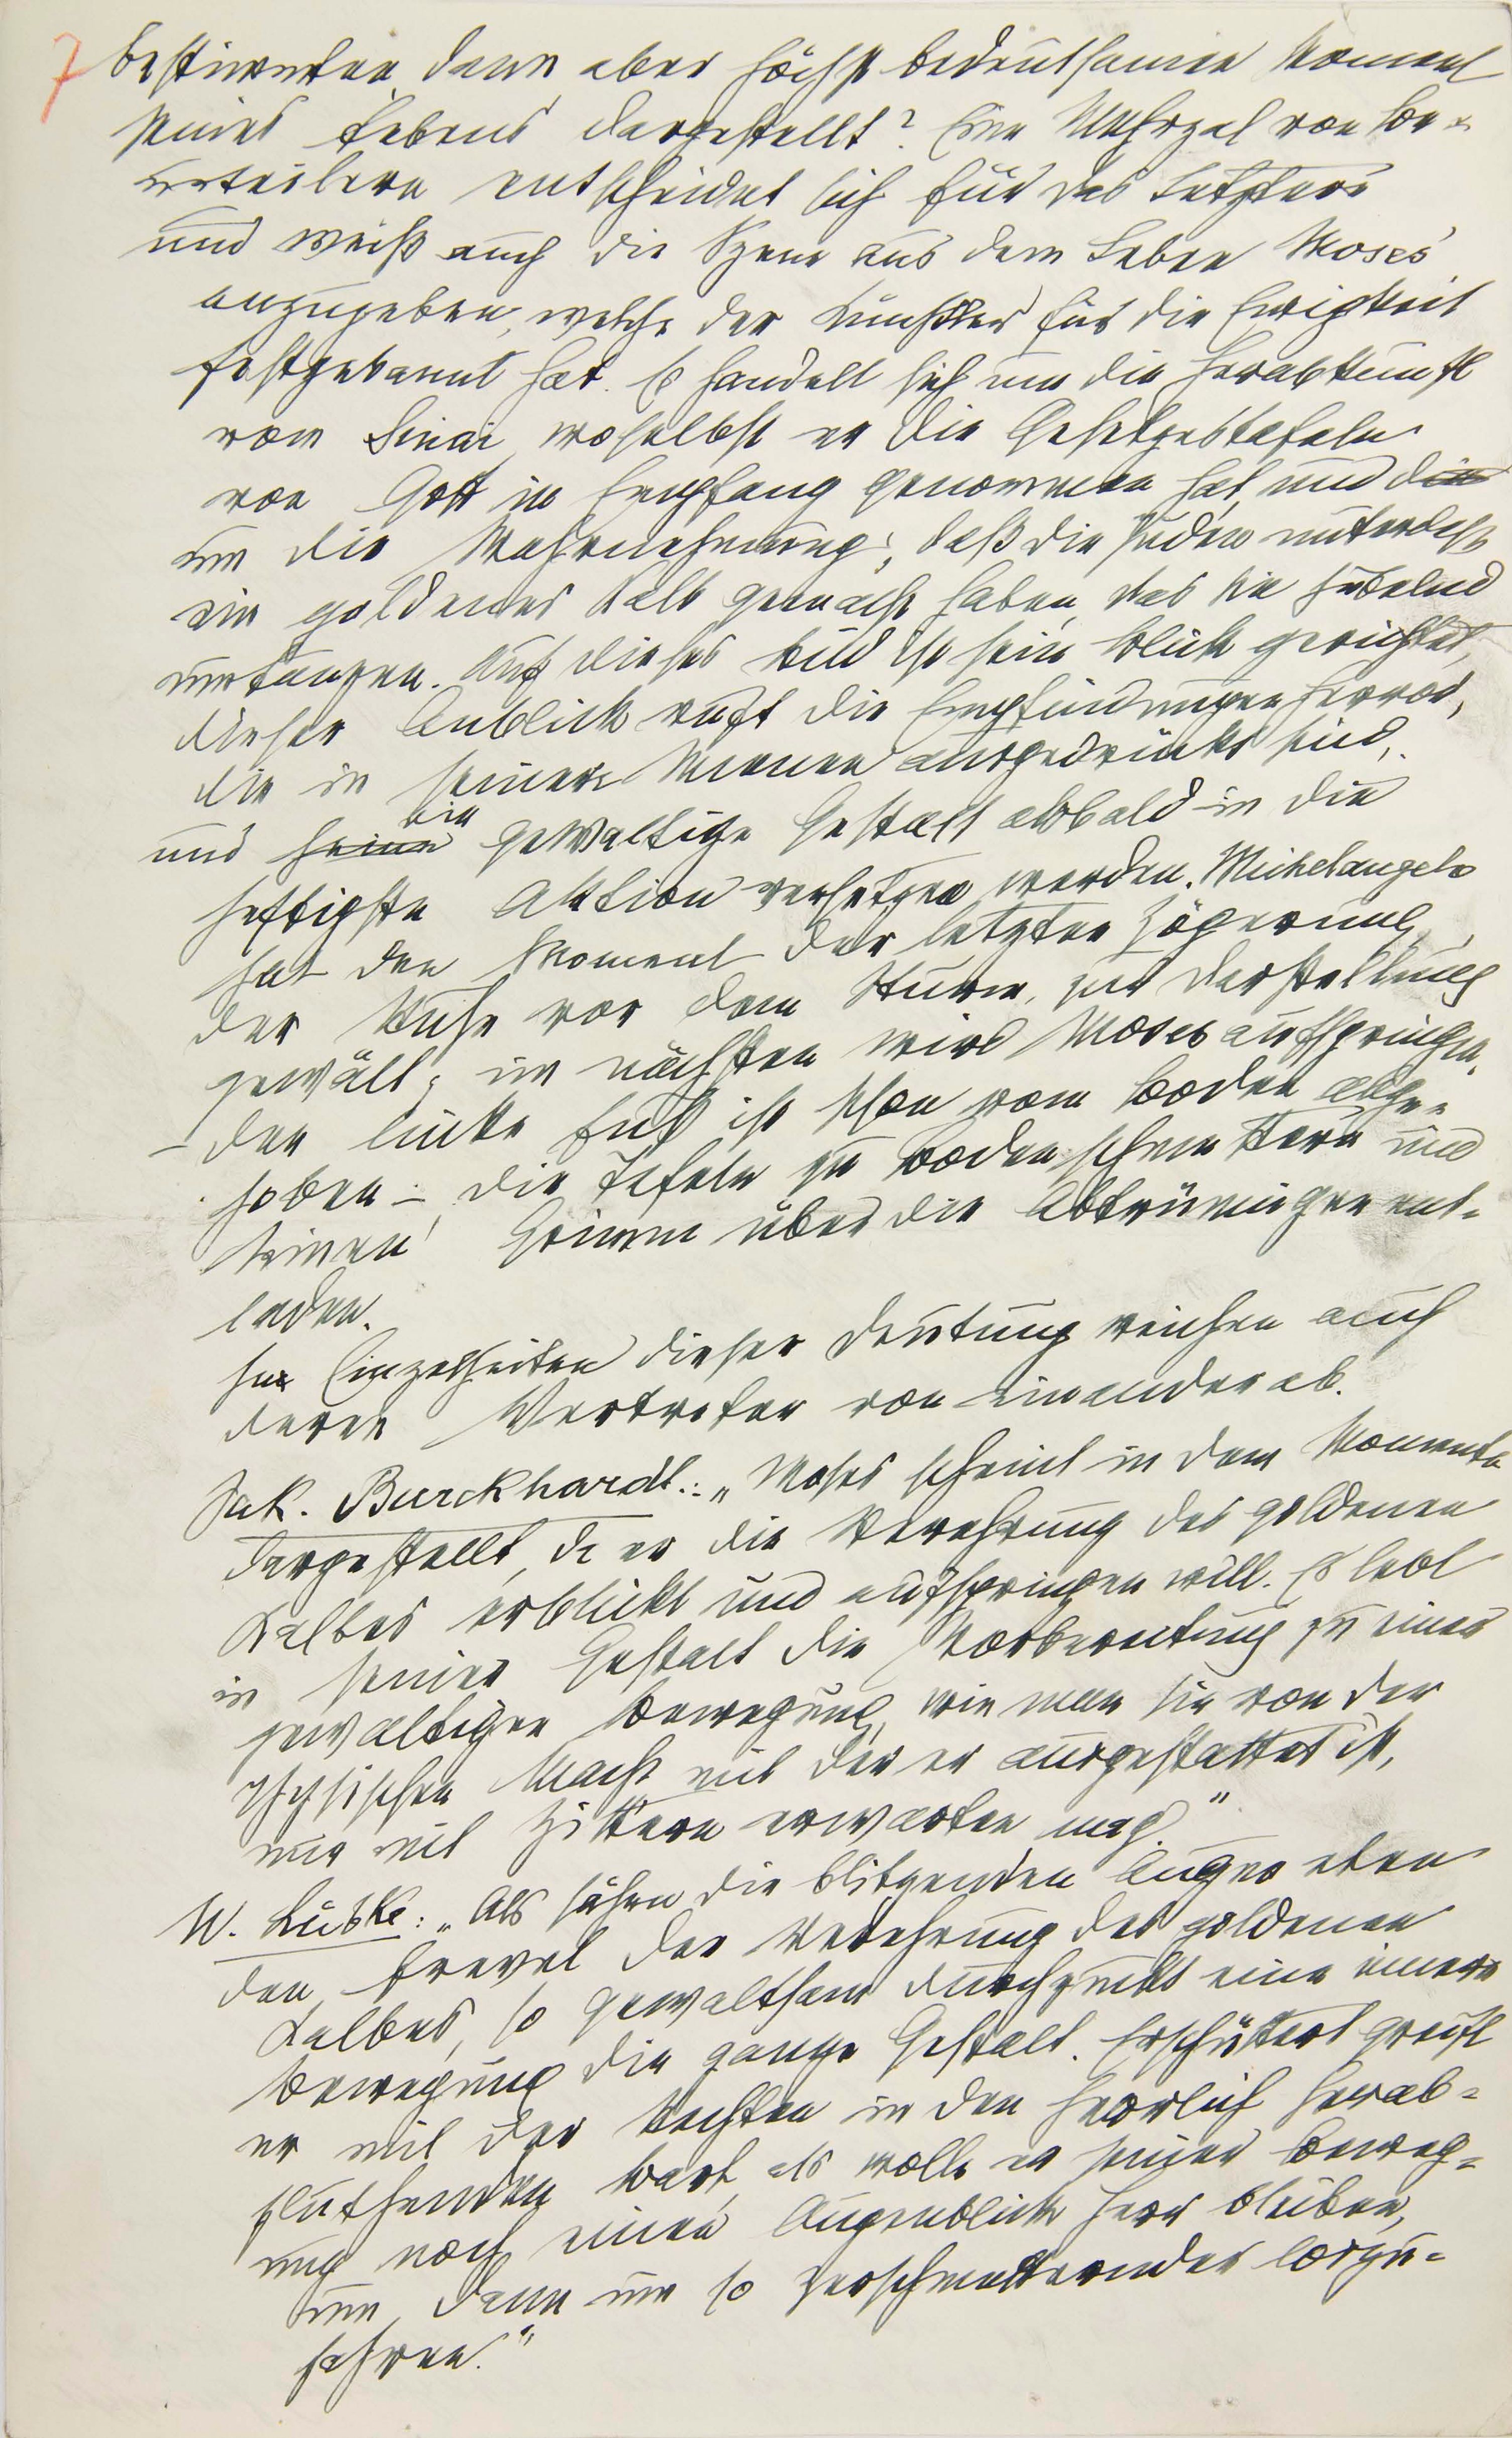 7 bestimmten, dann aber höchst bedeutsamen Moment
seines Lebens dargestellt? Eine Mehrzal von Be-
urteilern entscheidet sich für das Letztere
und weiß auch die Szene aus dem Leben Moses'
anzugeben, welche der Künstler für die Ewigkeit
festgebannt hat. Es handelt sich um die Herabkunft
vom Sinai, woselbst er die Gesetzestafeln
von Gott in Empfang genommen hat, und die
um die Wahrnehmung, daß die Juden unterdeß
ein goldenes Kalb gemacht haben, das sie jubelnd
umtanzen. Auf dieses Bild ist sein Blick gerichtet,
dieser Anblick ruft die Empfindungen hervor,
die in seinen Mienen ausgedrückt sind,
und seine die gewaltige Gestalt alsbald in die
heftigste Aktion versetzen werden. Michelangelo
hat den Moment der letzten Zögerung,
der Ruhe vor dem Sturm, zur Darstellung
gewält; im nächsten wird Moses aufspringen,
– der linke Fuß ist schon vom Boden abge-
hoben –, die Tafeln zu Boden schmettern und
seinen Grimm über die Abtrünnigen ent-
laden.
In Einzelheiten dieser Deutung weichen auch
deren Vertreter von einander ab.
Jak. Burckhardt: „Moses scheint in dem Momente
dargestellt, da er die Verehrung des goldenen
Kalbes erblickt und aufspringen will. Es lebt
in seiner Gestalt die Vorbereitung zu einer
gewaltigen Bewegung, wie man sie von der
physischen Macht, mit der er ausgestattet ist,
nur mit Zittern erwarten mag."
W. Lübke: „Als sähen die blitzenden Augen eben
den Frevel der Verehrung des goldenen
Kalbes, so gewaltsam durchzuckt eine innere
Bewegung die ganze Gestalt. Erschüttert greift
er mit der Rechten in den herrlich herab-
fluthenden Bart, als wolle er seiner Beweg-
ung noch einen Augenblick Herr bleiben,
um dann um so zerschmetternder loszu-
fahren."